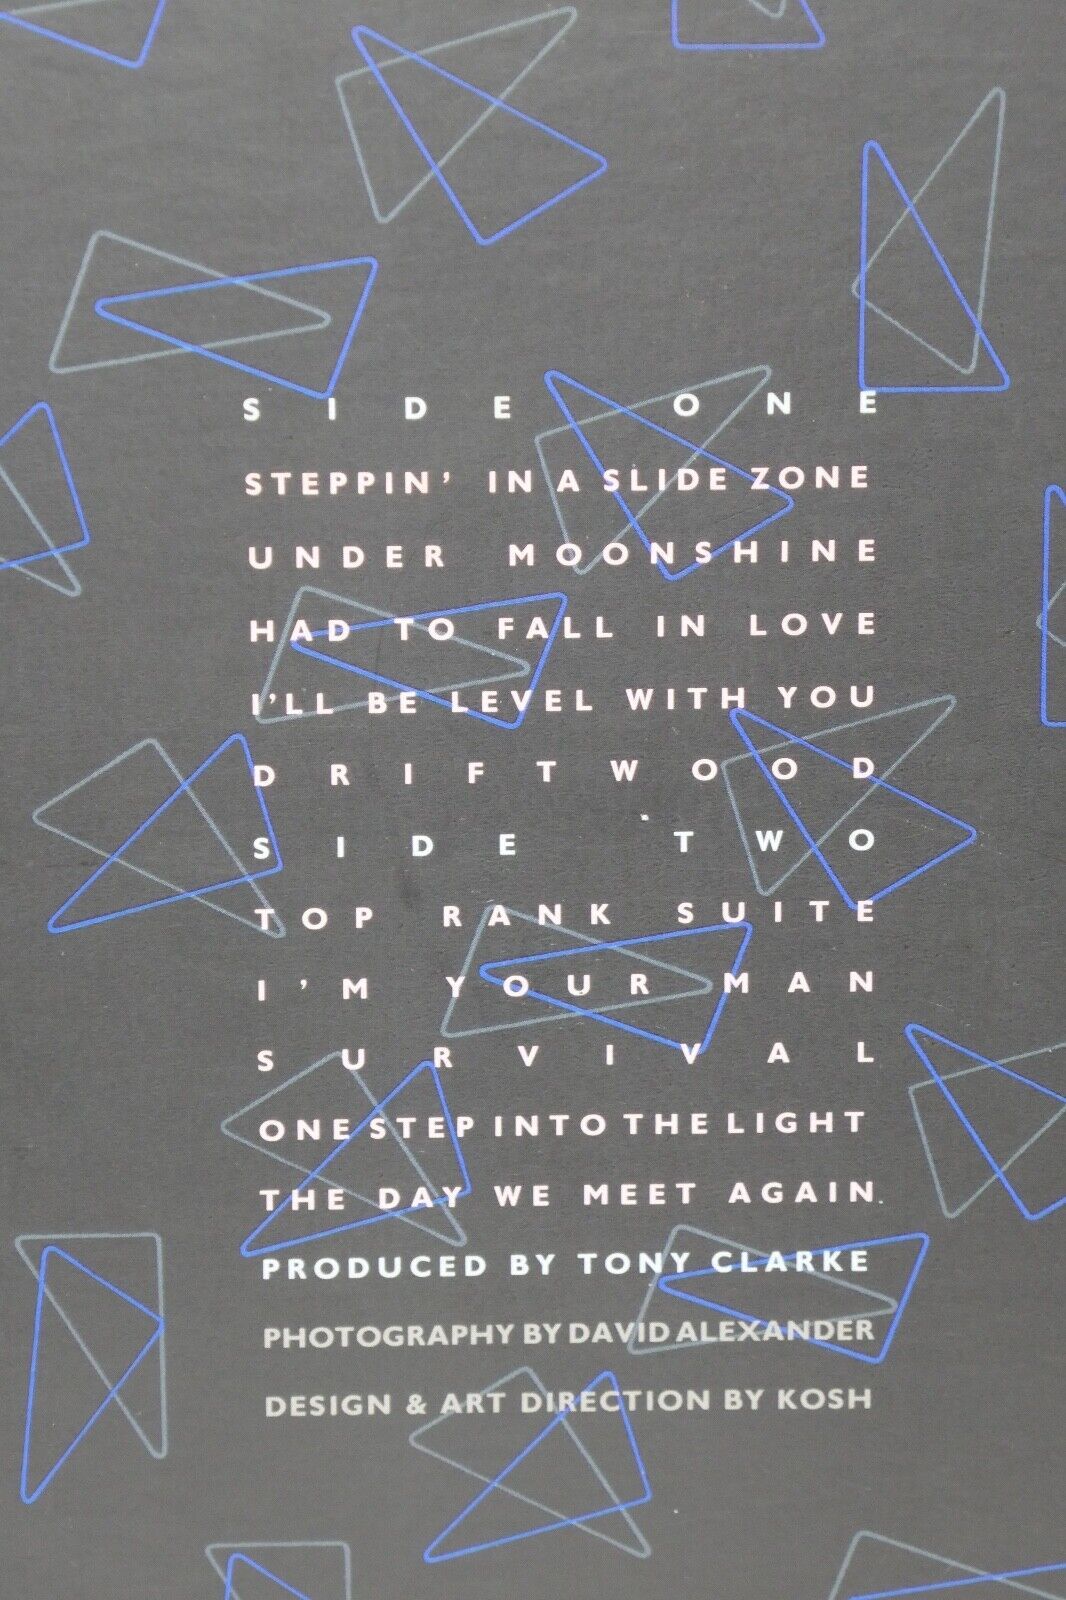 SIDE ONE
STEPPIN' IN A SLIDE ZONE
UNDER MOONSHINE
HAD TO FALL IN LOVE
I'LL BE LEVEL WITH YOU
DRIFTWOOD
SIDE TWO
TOP RANK SUITE
I'M YOUR MAN
SURVIVAL
ONE STEP INTO THE LIGHT
THE DAY WE MEET AGAIN.
PRODUCED BY TONY CLARKE
PHOTOGRAPHY BY DAVID ALEXANDER
DESIGN & ART DIRECTION BY KOSH